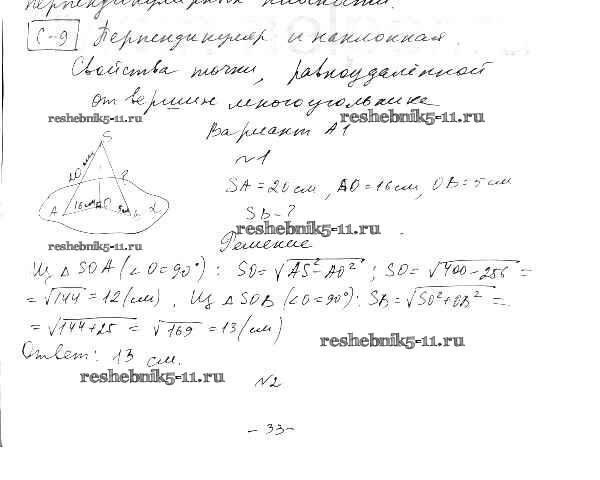 перпендикулярных плоскости.
С-9 Перпендикуляр и наклонная.
Свойства точки, равноудалённой
от вершин многоугольника
reshebnik5-11.ru reshebnik5-11.ru
Вариант А1
№1
S
20 см ?
A 16см O 5см B α
SA = 20 см, AO = 16 см, OB = 5 см
SB - ?
reshebnik5-11.ru reshebnik5-11.ru
Решение
Из △ SOA (∠O=90°): SO = √AS²-AO²; SO = √400-256 =
= √144 = 12 (см). Из △ SOB (∠O=90°): SB = √SO²+OB² =
= √144+25 = √169 = 13 (см)
reshebnik5-11.ru
Ответ: 13 см.
reshebnik5-11.ru
№2
- 33 -